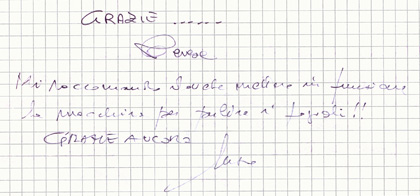 GRAZIE ......
Mi raccomando anche mettere in funzione
la macchina per pulire i tapeti!!
GRAZIE ANCORA